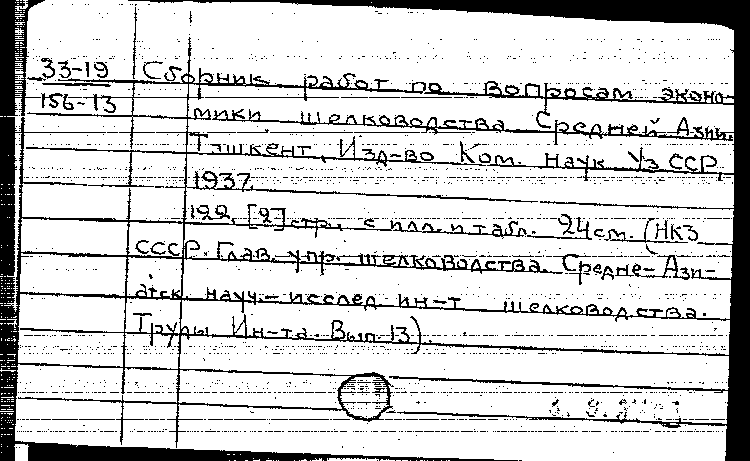 33-19 Сборник работ по вопросам эконо-
156-13 мики шелководства Средней Азии.
Ташкент, Изд-во Ком. наук УзССР,
1937.
122, [2] стр. с илл. и табл. 24 см. (НКЗ
СССР. Глав. упр. шелководства. Средне-Ази-
атск. науч.-исслед. ин-т шелководства.
Труды Ин-та. Вып. 13).